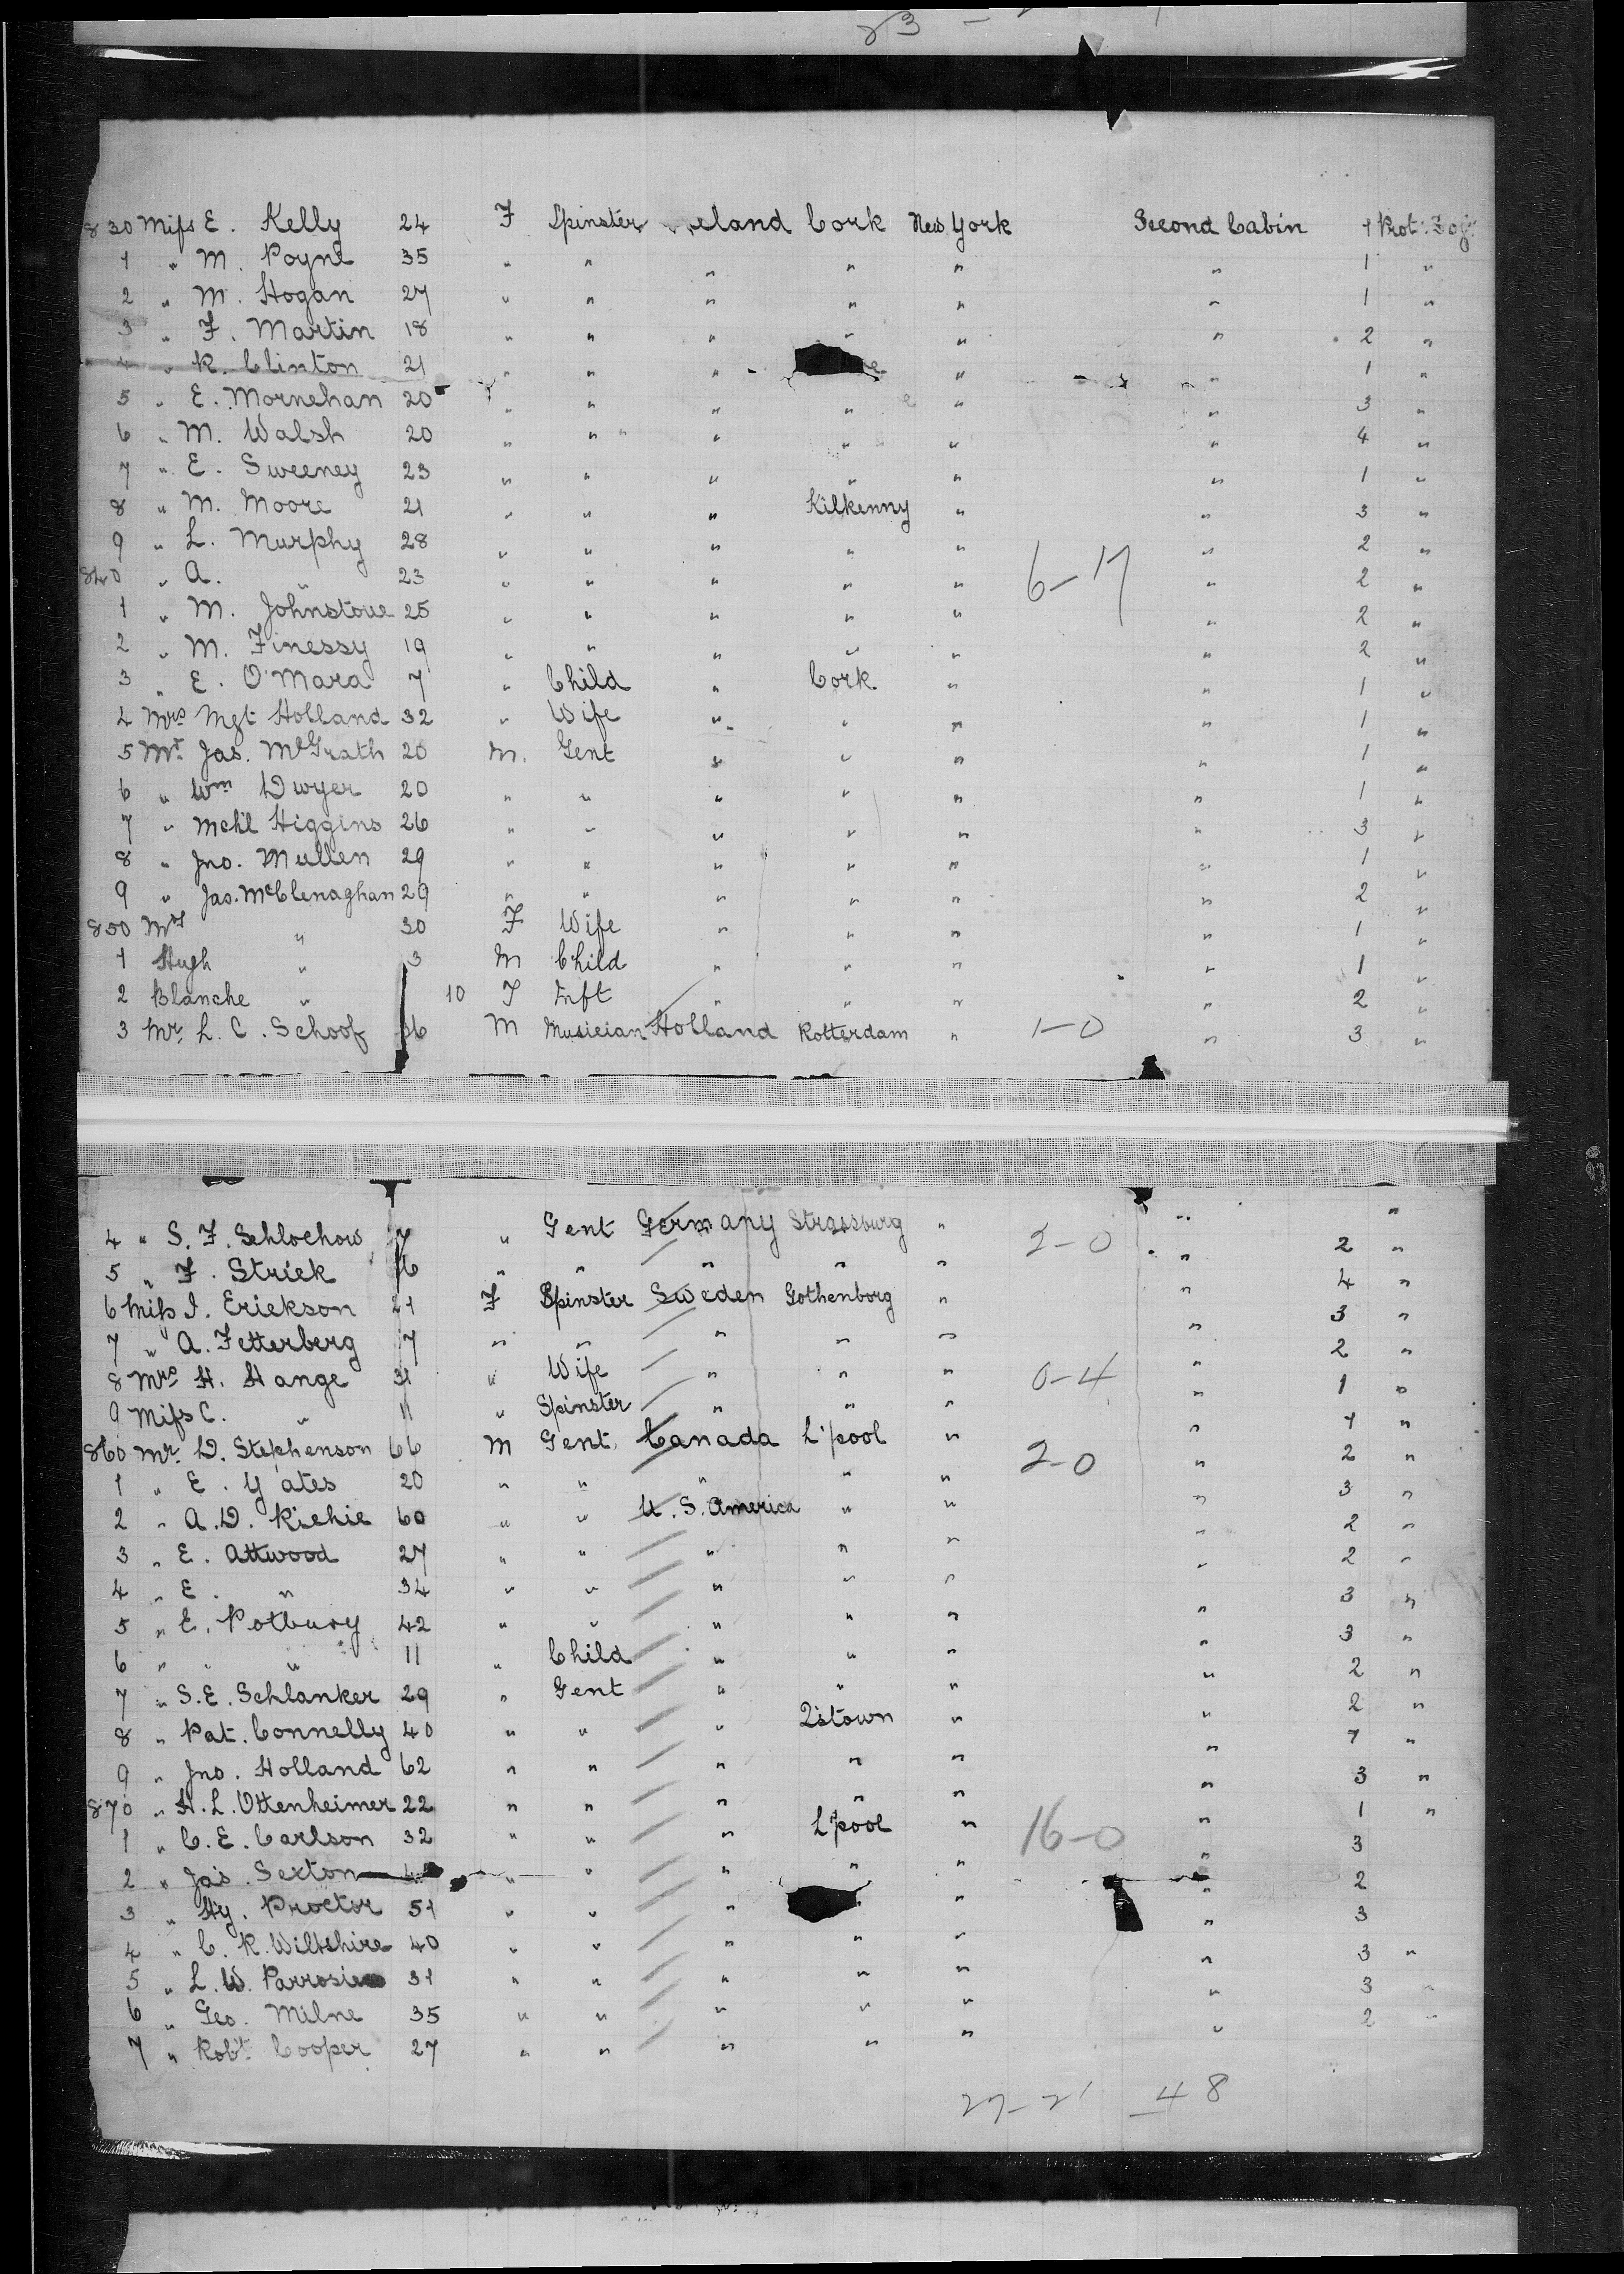 83 -
830 Miss E. Kelly 24 F Spinster Ireland Cork New York Second Cabin 1 Prot:
1 " M. Poyne 35 " " " " " " 1 "
2 " M. Hogan 27 " " " " " " 1 "
3 " F. Martin 18 " " " " " " 2 "
4 " K. Clinton 21 " " " " " 1 "
5 " E. Mornehan 20 " " " " " " 3 "
6 " M. Walsh 20 " " " " " " 4 "
7 " E. Sweeney 23 " " " " " " 1 "
8 " M. Moore 21 " " " Kilkenny " " 3 "
9 " L. Murphy 28 " " " " " " 2 "
840 " A. " 23 " " " " " 6-17 " 2 "
1 " M. Johnstone 25 " " " " " " 2 "
2 " M. Finessy 19 " " " " " " 2 "
3 " E. O'Mara 7 " Child " Cork " " 1 "
4 Mrs Mgt Holland 32 " Wife " " " " 1 "
5 Mr Jas. McGrath 20 M. Gent " " " " 1 "
6 " Wm Dwyer 20 " " " " " " 1 "
7 " Mchl Higgins 26 " " " " " " 3 "
8 " Jno. Mullen 29 " " " " " " 1 "
9 " Jas. McClenaghan 29 " " " " " " 2 "
850 Mrs " 30 F Wife " " " " 1 "
1 Hugh " 3 M Child " " " " 1 "
2 Blanche " 10 F Inft " " " " 2 "
3 Mr L. C. Schoof 36 M Musician Holland Rotterdam " 1-0 " 3 "
4 " S. F. Schlochow 7 " Gent Germany Strassburg " 2-0 " "
5 " F. Strick 6 " " " " " " 2 "
6 Miss I. Erickson 21 F Spinster Sweden Gothenborg " " 4 "
7 " A. Fetterberg 7 " " " " " " 3 "
8 Mrs H. Hange 31 " Wife " " " 0-4 " 2 "
9 Miss C. " 11 " Spinster " " " " 1 "
860 Mr. D. Stephenson 66 M Gent. Canada L'pool " 2-0 " 1 "
1 " E. Yates 20 " " " " " " 2 "
2 " A. D. Richie 60 " " U.S. America " " " 3 "
3 " E. Attwood 27 " " " " " " 2 "
4 " E. " 34 " " " " " " 2 "
5 " E. Potbury 42 " " " " " " 3 "
6 " " " 11 " Child " " " " 3 "
7 " S. E. Schlanker 29 " Gent " " " " 2 "
8 " Pat. Connelly 40 " " " Q'stown " " 2 "
9 " Jno. Holland 62 " " " " " " 7 "
870 " H. L. Ottenheimer 22 " " " " " " 3 "
1 " C. E. Carlson 32 " " " L'pool " 16-0 " 1 "
2 " Jas. Sexton " " " " " " 3
3 " Hy. Proctor 51 " " " " " 2
4 " C. R. Wiltshire 40 " " " " " " 3
5 " L. W. 31 " " " " " " 3 "
6 " Geo. Milne 35 " " " " " " 3 "
7 " Robt Cooper 27 " " " " " " 2 "
27-21 48